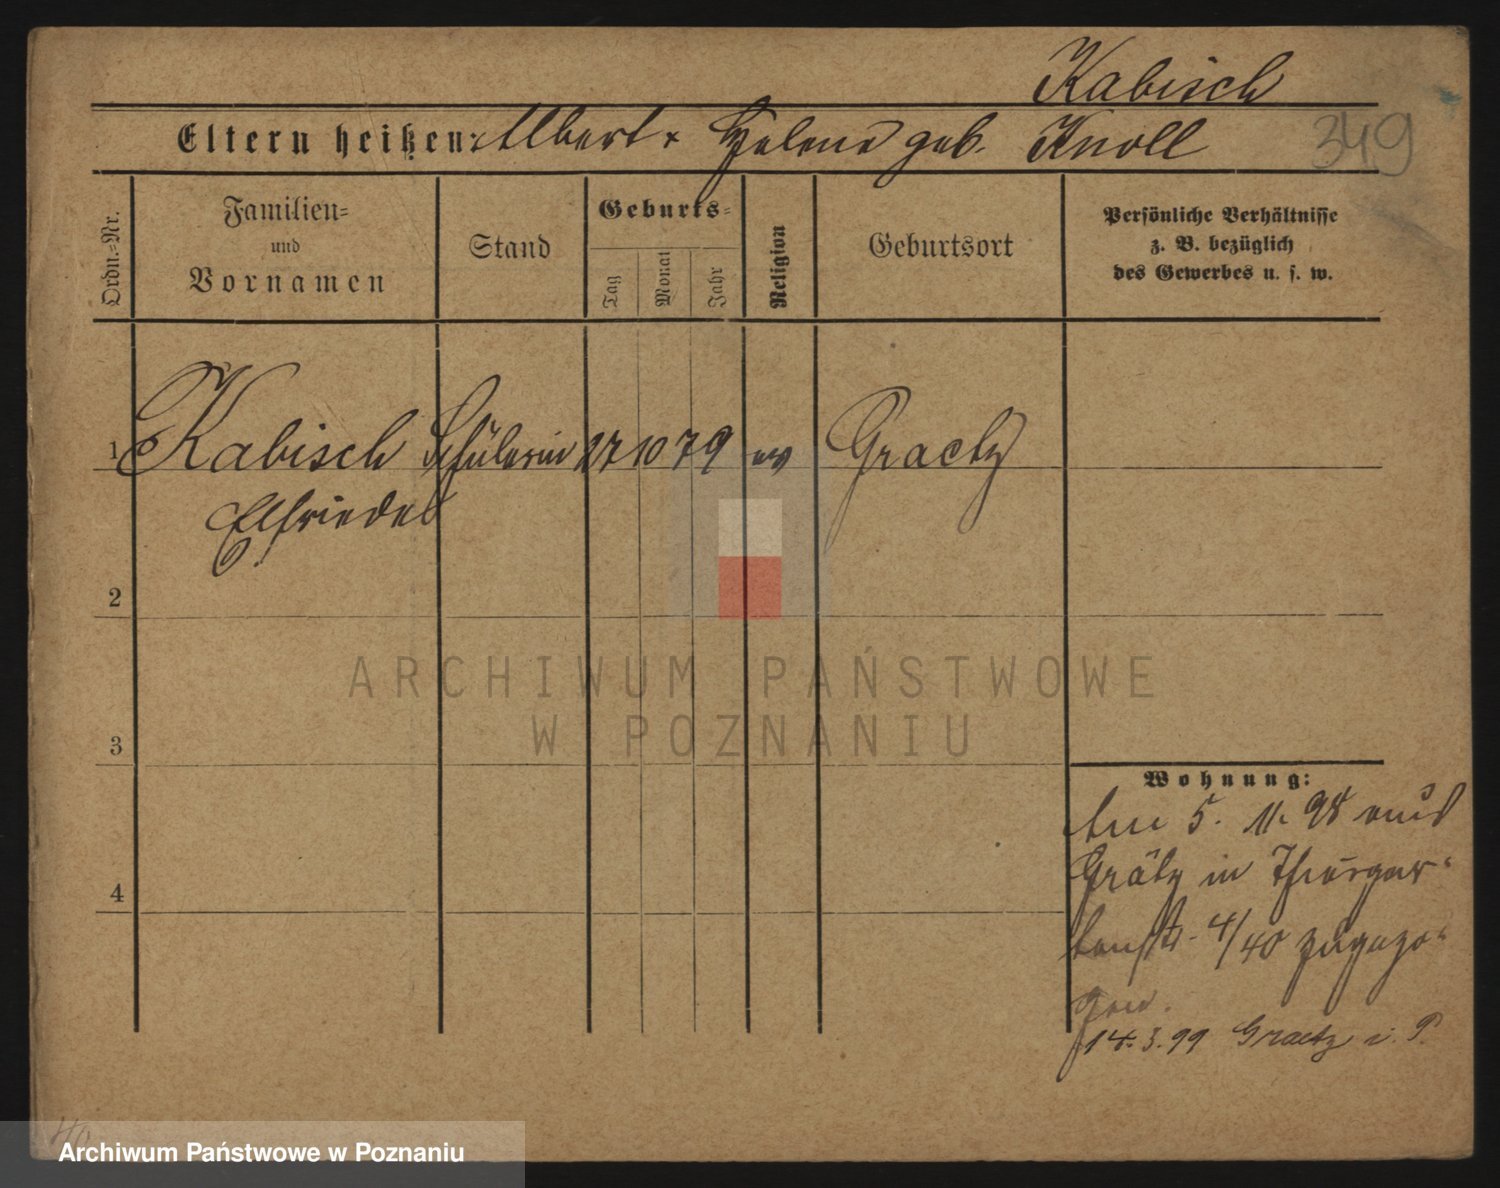 Kabisch
Eltern heißen: Albert + Helene geb. Knoll
349
Ordn.=Nr.
Familien=
und
Vornamen
Stand
Geburts=
Tag
Monat
Jahr
Religion
Geburtsort
Persönliche Verhältnisse
z. B. bezüglich
des Gewerbes u. s. w.
1 Kabisch Schülerin 27 10 79 ev Graetz
Elfriede
2
3
4
Wohnung:
Am 5. 11. 98 aus
Grätz in Thiergar-
tenstr. 4/40 zugezo-
gen.
14.3.99 Graetz i. P.
40
ARCHIWUM PAŃSTWOWE
W POZNANIU
Archiwum Państwowe w Poznaniu